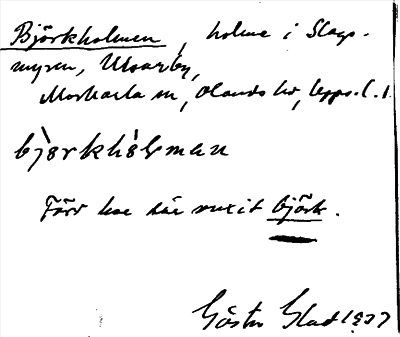 Björkholmen, holme i Slags-
myren, Ulvarby,
Morkarla sn, Olands hd, Upps. l.
bjòrkhòlman
Förr har här vuxit björk.
Gösta Glad 1927